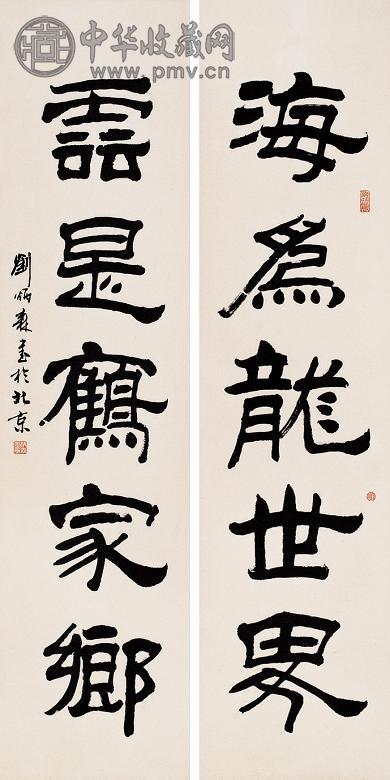 中华收藏网
www.pmv.cn
海爲龍世界
雲是鶴家鄉
劉炳森書於北京